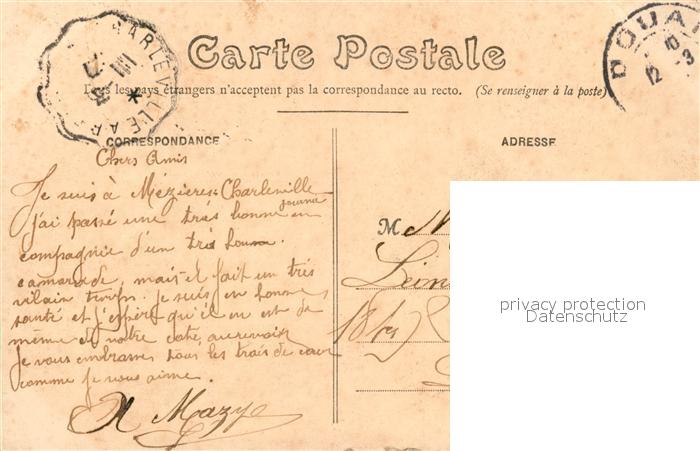 Carte Postale
Tous les pays étrangers n'acceptent pas la correspondance au recto. (Se renseigner à la poste)
CORRESPONDANCE
ADRESSE
Chers Amis
Je suis à Mézières-Charleville
j'ai passé une très bonne journé en
compagnie d'un très bonne
camarade, mais il fait un très
vilain temps. Je suis en bonne
santé et j'espère qu'il en est de
même de votre coté, au revoir
Je vous embrasse tous les trois de cœur
comme je vous aime.
A Mazye
M
Léon
18
CHARLEVILLE A
DOUAI
10
12 3
privacy protection
Datenschutz